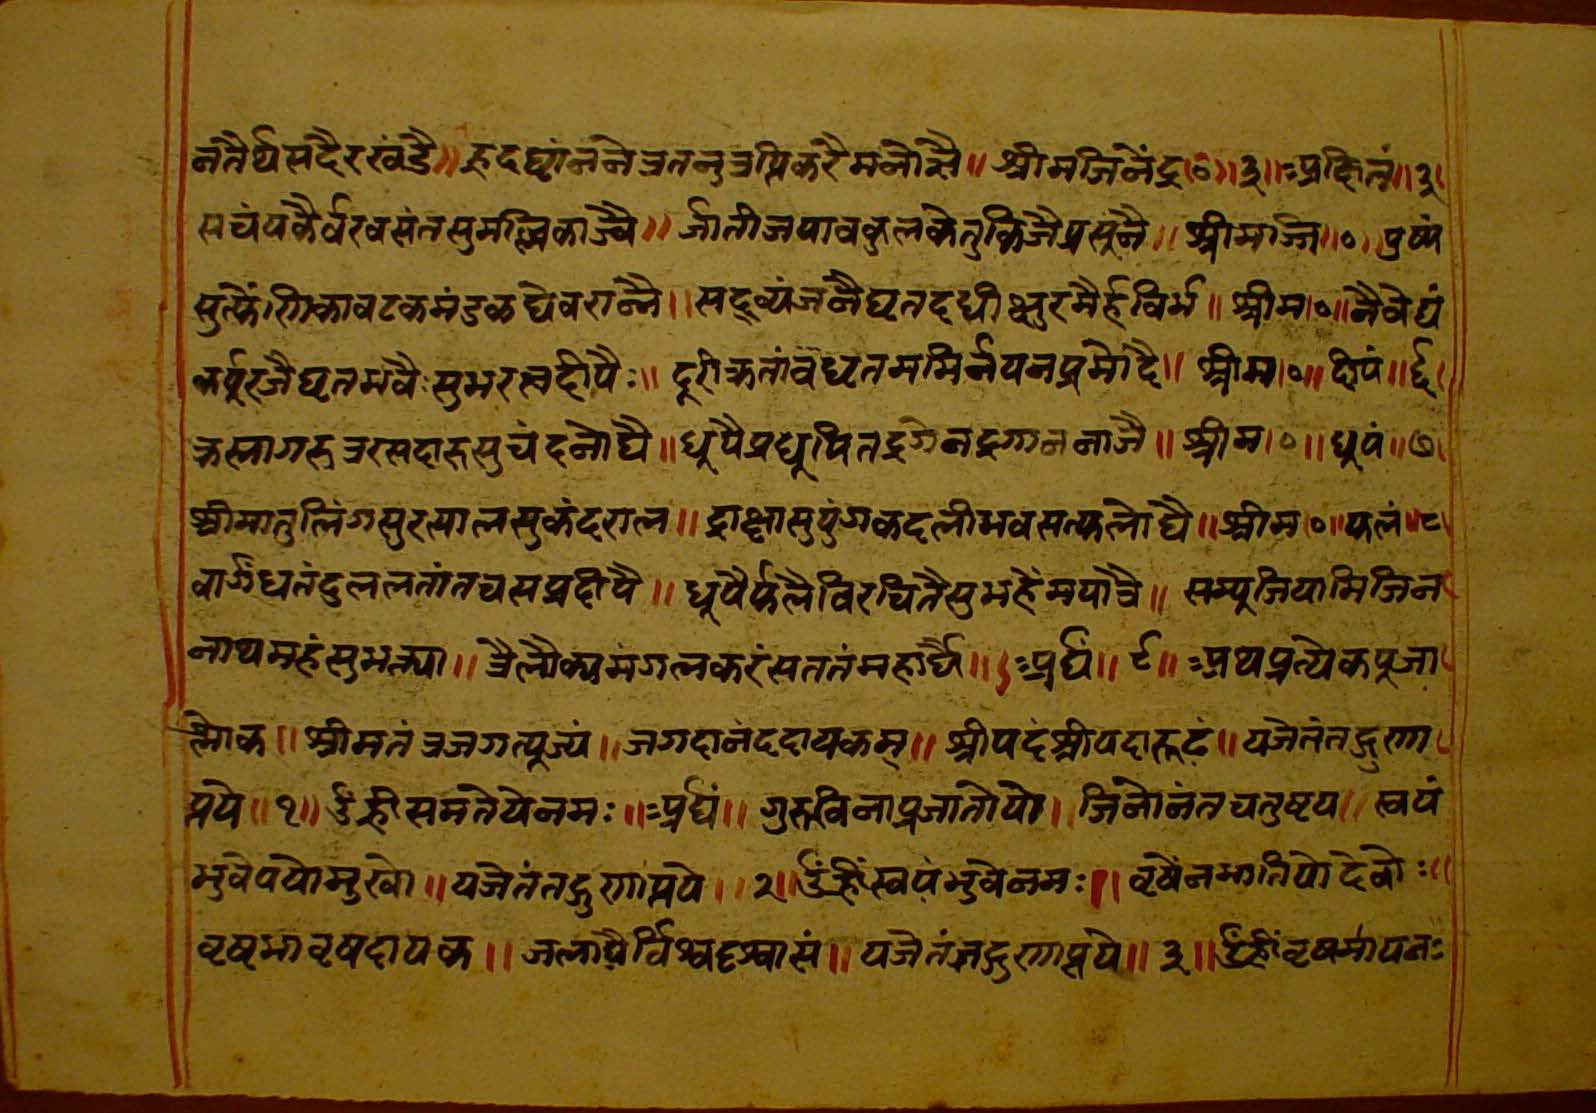 नतैर्थसदैरखंडै॥ हृदघ्रांननेत्रतनुत्रप्तिकरैमनोज्ञै॥ श्रीमजिनेंद्र॰॥३॥ ःप्रक्षितं॥३
सचंपकैर्वरवसंतसुमल्लिकाज्वै॥ र्जातीजपावकुलकेतुकिजैप्रसूनै॥ श्रीमज्जि॥०॥ पुष्पं
सुत्फेंणिकावटकमंडकघेवरान्नै॥ सद्व्यंजनैघृतदधीक्षुरमैर्हविर्भ॥ श्रीम॥०॥ नैवेद्यं
कर्पूरजैघृतमवैःसुभरत्नदीपैः॥ दूरीक्रतांवधृतममिर्नयनप्रमोदै॥ श्रीम॥०॥ दीपं॥६
क्रस्नागरुत्ररसदारुसुचंदनोघै॥ धूपैप्रधूपितद्रगेनद्रगाननाजै॥ श्रीम।०॥ धूपं॥७
श्रीमातुलिंगसुरत्यालसुकंदराल॥ द्राक्षासुपुंगकदलीभवसत्फलोघै॥ श्रीम॥०॥ फलं॥८
वार्गंधतंदुललतांतचसप्रदीपै॥ धूपैर्फलैविरचितैसुभहेंमपात्रै॥ सम्पूजियामिजिन
नाथमहंसुभक्त्या॥ त्रैलौक्यमंगलकरंसततंमहार्घै॥ ःप्रर्घं॥९॥ ःप्रथप्रत्येकपूजा
श्लोक॥ श्रीमतंत्रजगत्पूज्यं॥ जगदानंददायकम्॥ श्रीपदंश्रीपदारूढं॥ यजेतंतद्गुणा
प्तये॥१॥ ॐह्रीसमतेयेनमः॥ ःप्रर्घं॥ गुरुविनाप्रजातोयो॥ जिनोनंतचतुष्टय॥ स्वयं
भुवेपयोमुखो॥ यजेतंतद्गुणाप्तये॥२॥ ॐह्रींस्वयंभुवेनमः॥ वृषेंनभातियोदेवोः॥
वृषभावृषदायक॥ जलाद्यैर्विश्वदृश्वासं॥ यजेतंतद्गुणाप्तये॥३॥ ॐह्रींवृषभायनः